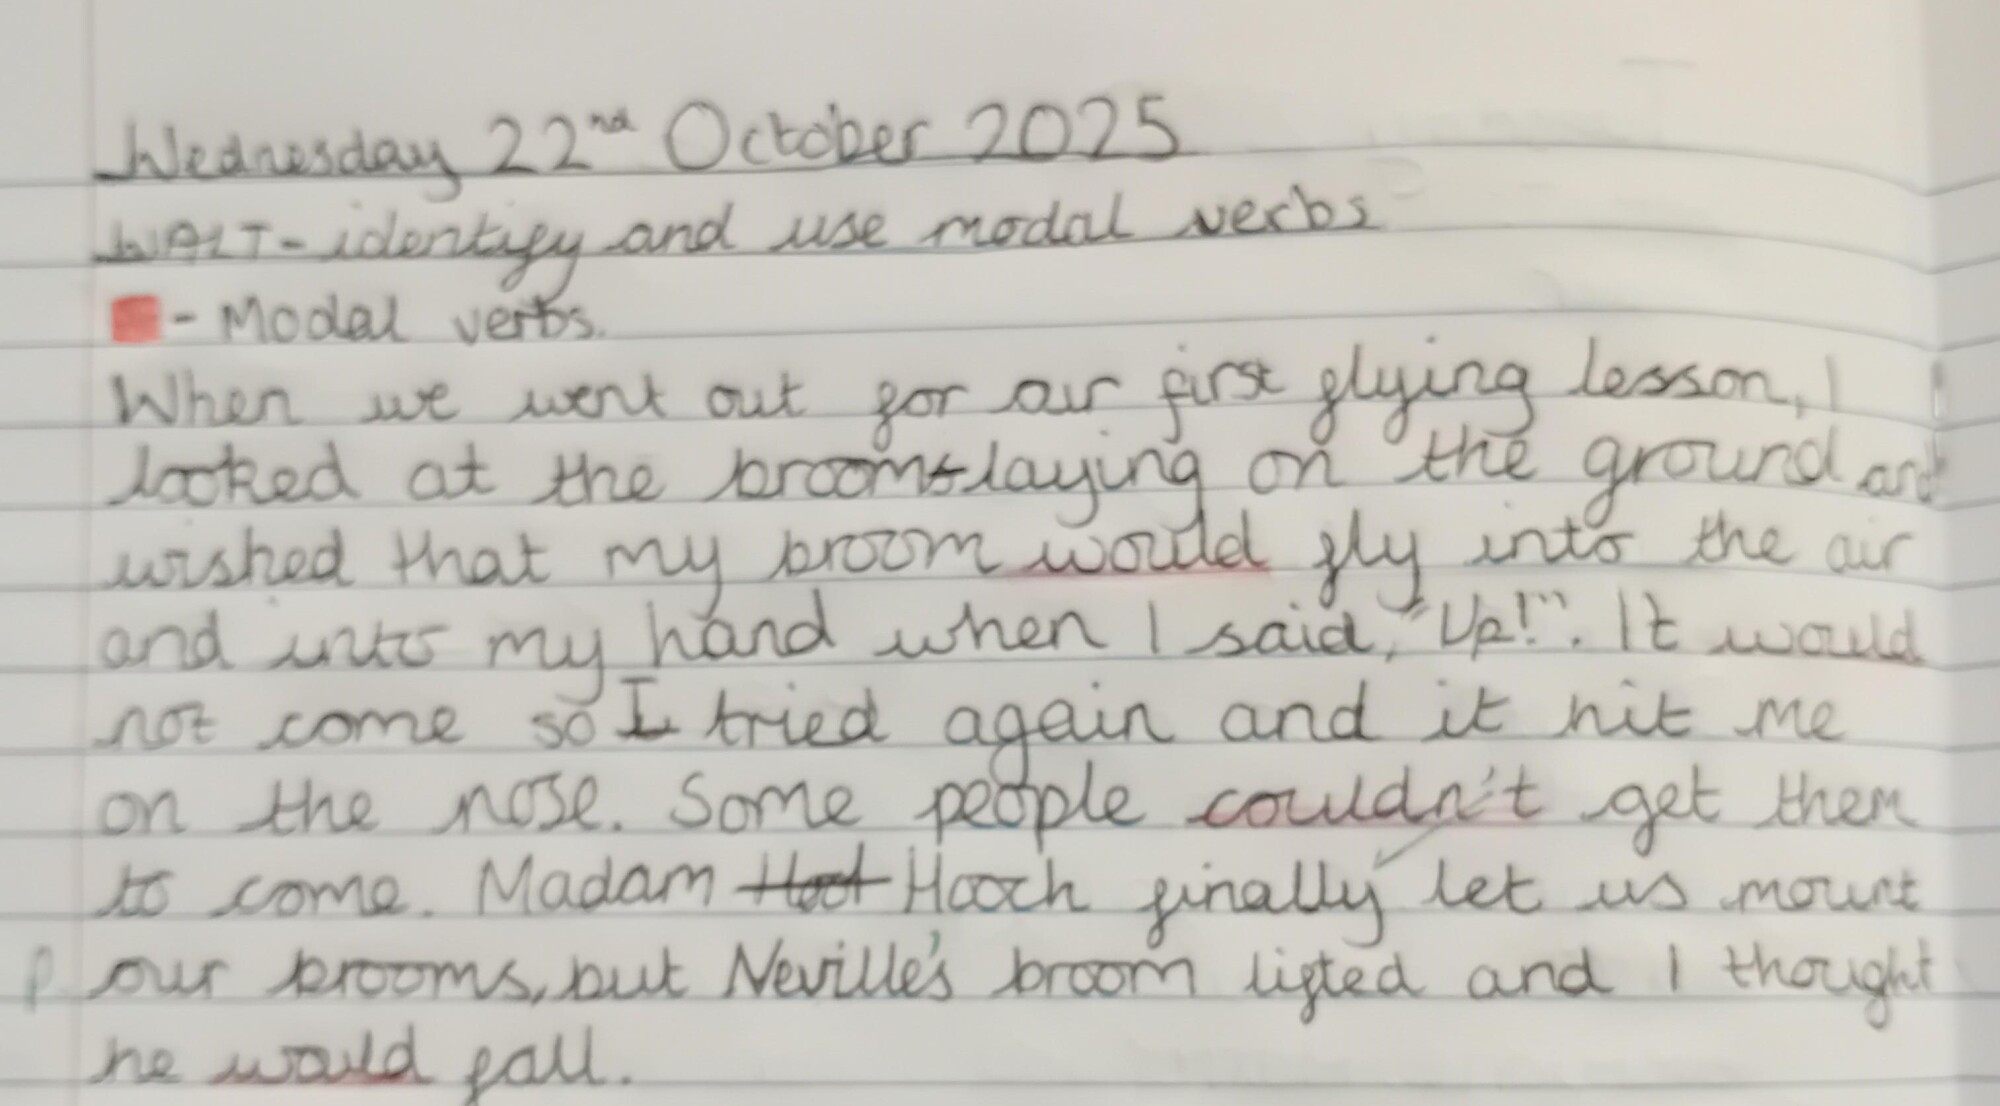 Wednesday 22nd October 2025
WALT- identify and use modal verbs
- Modal verbs.
When we went out for our first flying lesson, I
looked at the brooms laying on the ground and
wished that my broom would fly into the air
and into my hand when I said, "Up!". It would
not come so I tried again and it hit me
on the nose. Some people couldn't get them
to come. Madam Hoot Hooch finally let us mount
our brooms, but Neville's broom lifted and I thought
he would fall.